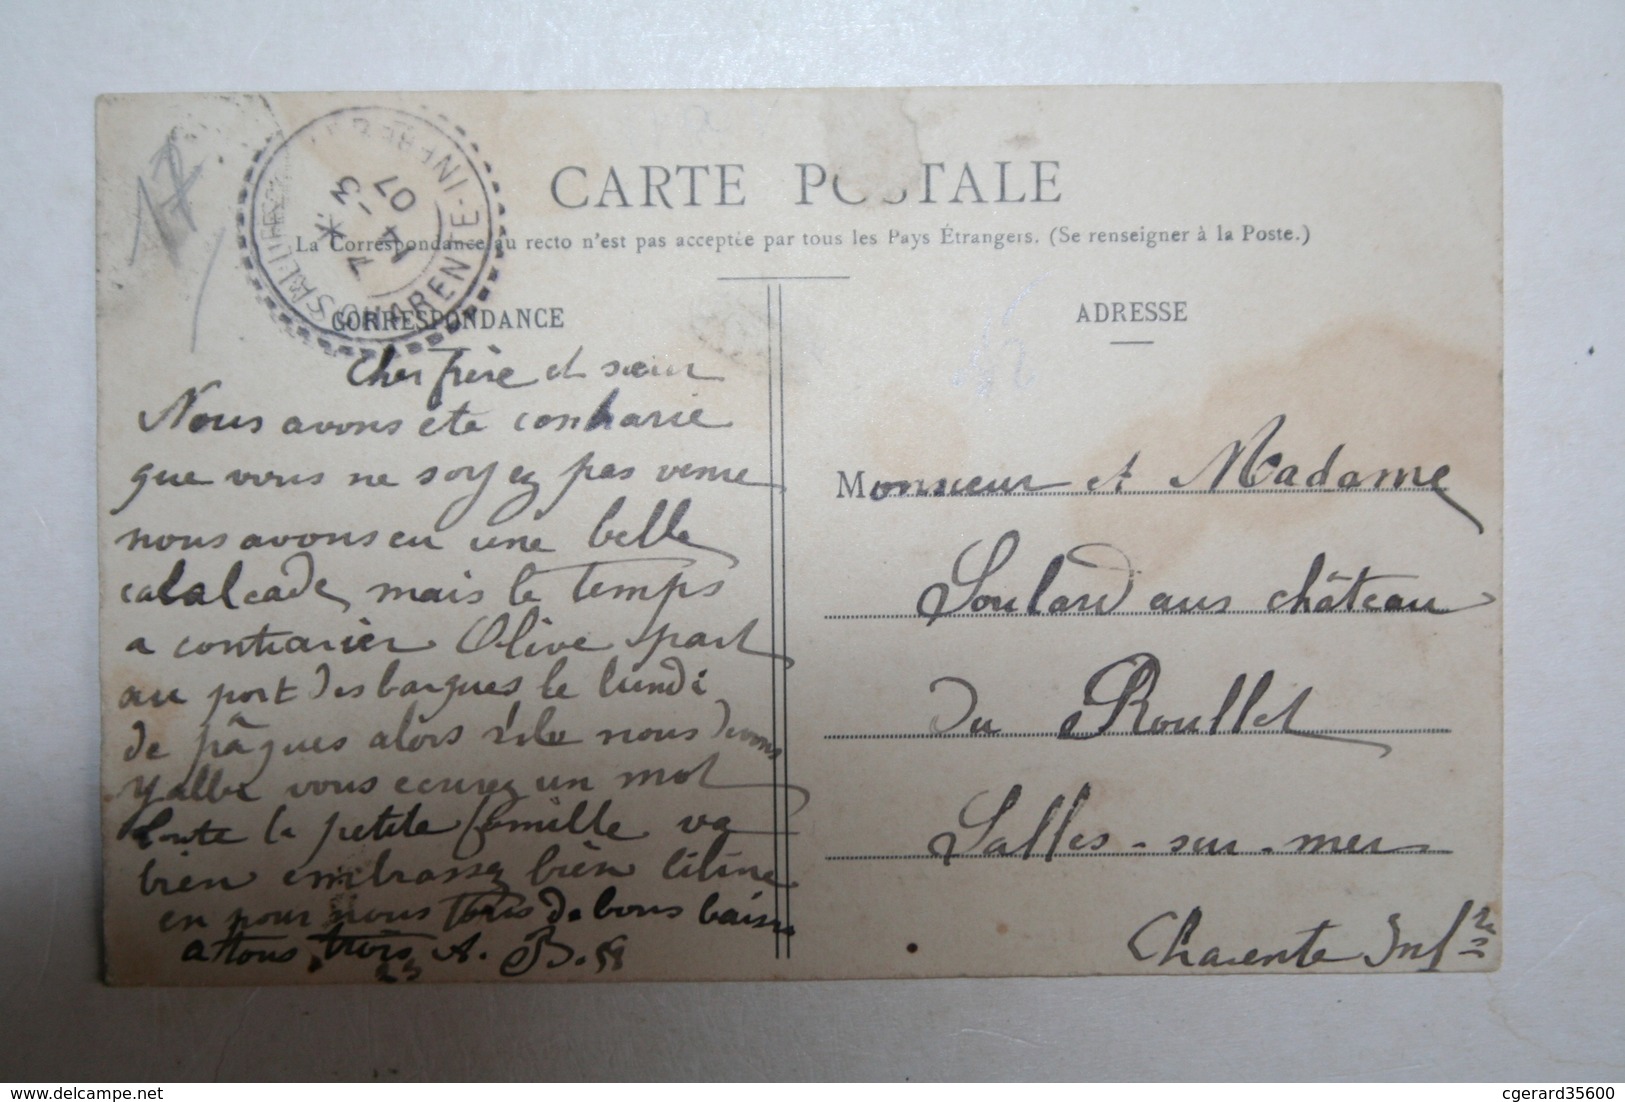 17
CHARENTE-INFRE
7
3 -4
07
CARTE POSTALE
La Correspondance au recto n'est pas acceptée par tous les Pays Étrangers. (Se renseigner à la Poste.)
CORRESPONDANCE
ADRESSE
Cher frère et sœur
Nous avons ete contrarie
que vous ne soyez pas venue
nous avons eu une belle
cavalcade mais le temps
a contrarier Olive part
au port des barques le lundi
de pâques alors nous devons
y aller vous ecurez un mot
toute la petite famille va
bien embrassez bien liline
en pour nous tous de bons baise
a tous trois A. B.
Monsieur et Madame
Soulard aus château
du Roullet
Salles-sur-mer
Charente Infre
cgerard35600